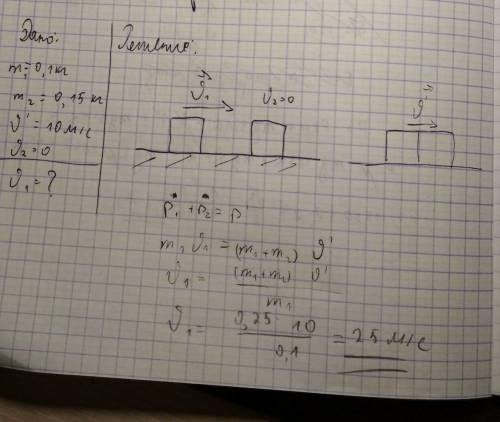 Дано:
m₁=0,1кг
m₂=0,15кг
ϑ'=10м/с
ϑ₂=0
ϑ₁=?
Решение:
ϑ₁
ϑ₂=0
ϑ'
p₁+p₂=p'
m₁ϑ₁=(m₁+m₂) ϑ'
ϑ₁= (m₁+m₂) ϑ'
m₁
ϑ₁= 0,25·10 = 25 м/с
0,1